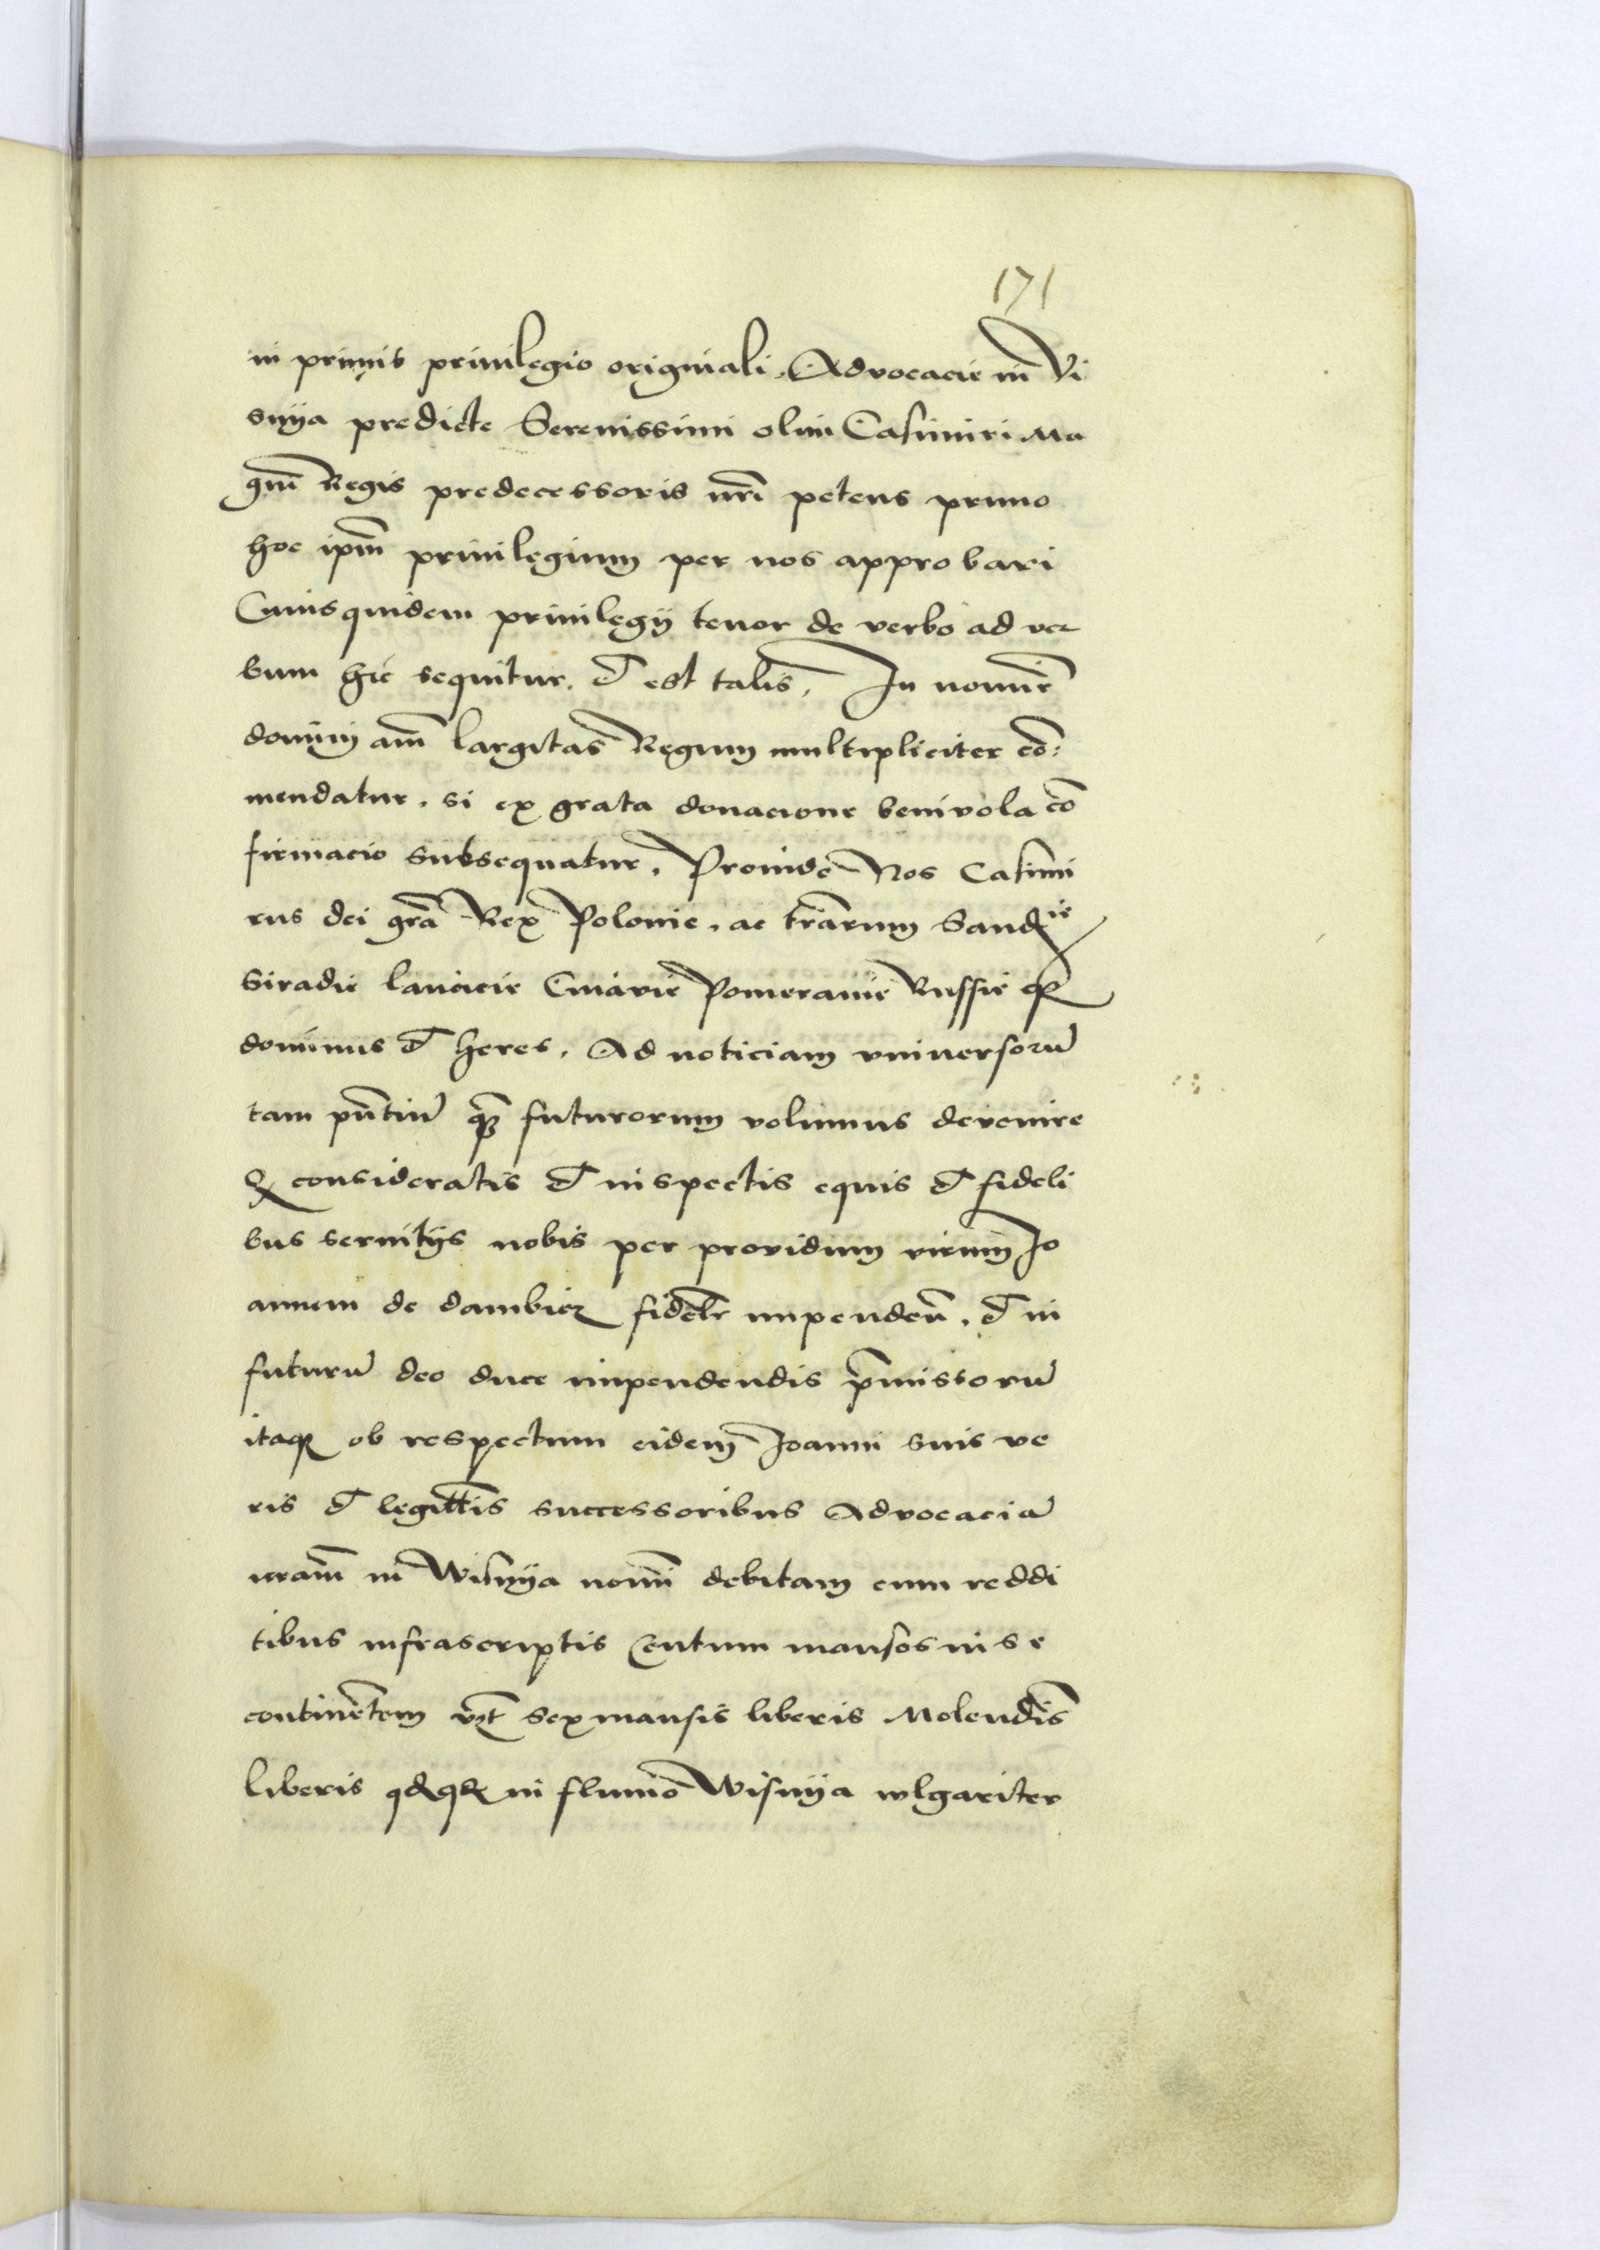 171
in primis privilegio originali Advocacie in Vi
snya predicte Serenissimi olim Casimiri Ma
gni Regis predecessoris nrī petens primo
hoc ipm̄ privilegium per nos approbari
Cuiusquidem privilegij tenor de verbo ad ver
bum hic sequitur. et est talis, In nomīe
domini am̄ largitas Regum multipliciter cō:
mendatur, si ex grata donacione benivola cō
firmacio subsequatur, Proinde Nos Casimi
rus dei grā Rex Polonie, ac tr̄arum Sandie
Siradie lancicie Cuiavie Pomeranie Russie qz
dominus et heres, Ad noticiam universorū
tam pn̄tiū qz futurorum volumus devenire
q consideratis et inspectis equis et fideli
bus servitijs nobis per providum virum Jo
annem de dambicz fidelr̄ impenden̄, et in
futurū deo duce impendendis p̄missorū
itaqz ob respectum eidem Joanni suis ve
ris et legittīs successoribus Advocaciā
nrām in Wisnya nom̄i debitam cum reddi
tibus infrascriptis Centum mansos in se
continētem vz̄t sex mansis liberis Molendīs
liberis qdqd in flumīo Wisnya wlgariter